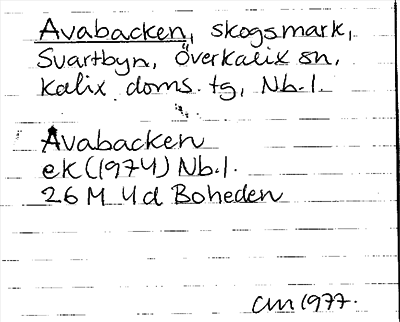 Avabacken, skogsmark,
Svartbyn, Överkalix sn,
Kalix doms. tg, Nb.l.
Avabacken
ek (1974) Nb.l.
26 M 4d Boheden
CM 1977.